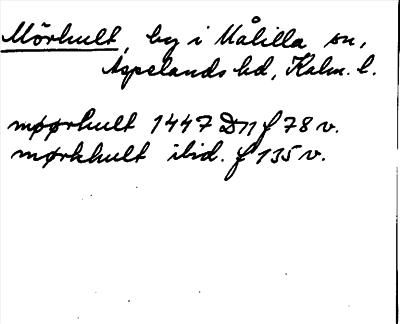 Mörhult, by i Målilla sn,
Aspelands hd, Kalm. l.
møørhult 1447 Dn f 78 v.
mørkhult ibid. f 135 v.